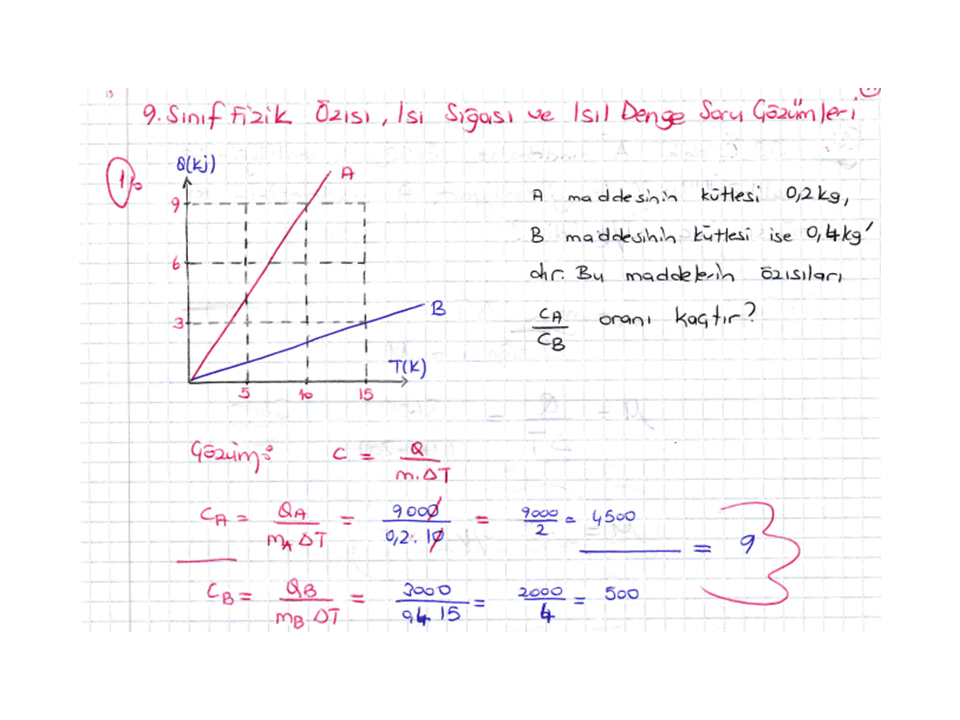 9. Sınıf Fizik Özısı, Isı Sığası ve Isıl Denge Soru Çözümleri
1.
Q(kj)
A
9
6
3
B
T(K)
5 10 15
A maddesinin kütlesi 0,2 kg,
B maddesinin kütlesi ise 0,4 kg'
dır. Bu maddelerin özısıları
CA/CB oranı kaçtır?
Çözüm: C = Q/m.ΔT
CA = QA/mA ΔT = 9000/0,2.10 = 9000/2 = 4500
= 9
CB = QB/mB.ΔT = 3000/0,4 15 = 2000/4 = 500